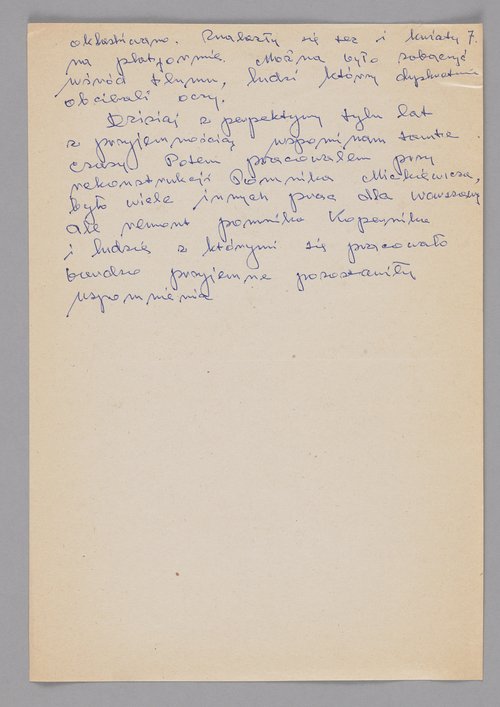 oklaskiwano. Znalazły się też i kwiaty 7.
na platformie. Można było zobaczyć
wśród tłumu, ludzi którzy dyskretnie
obcierali oczy.
Dzisiaj z perpektywy tylu lat
z przyjemnością wspominam tamte
czasy. Potem pracowałem przy
rekonstrukcji Pomnika Mickiewicza,
było wiele innych prac dla Warszawy
ale remont pomnika Kopernika
i ludzie z którymi się pracowało
bardzo przyjemne pozostawiły
wspomnienia